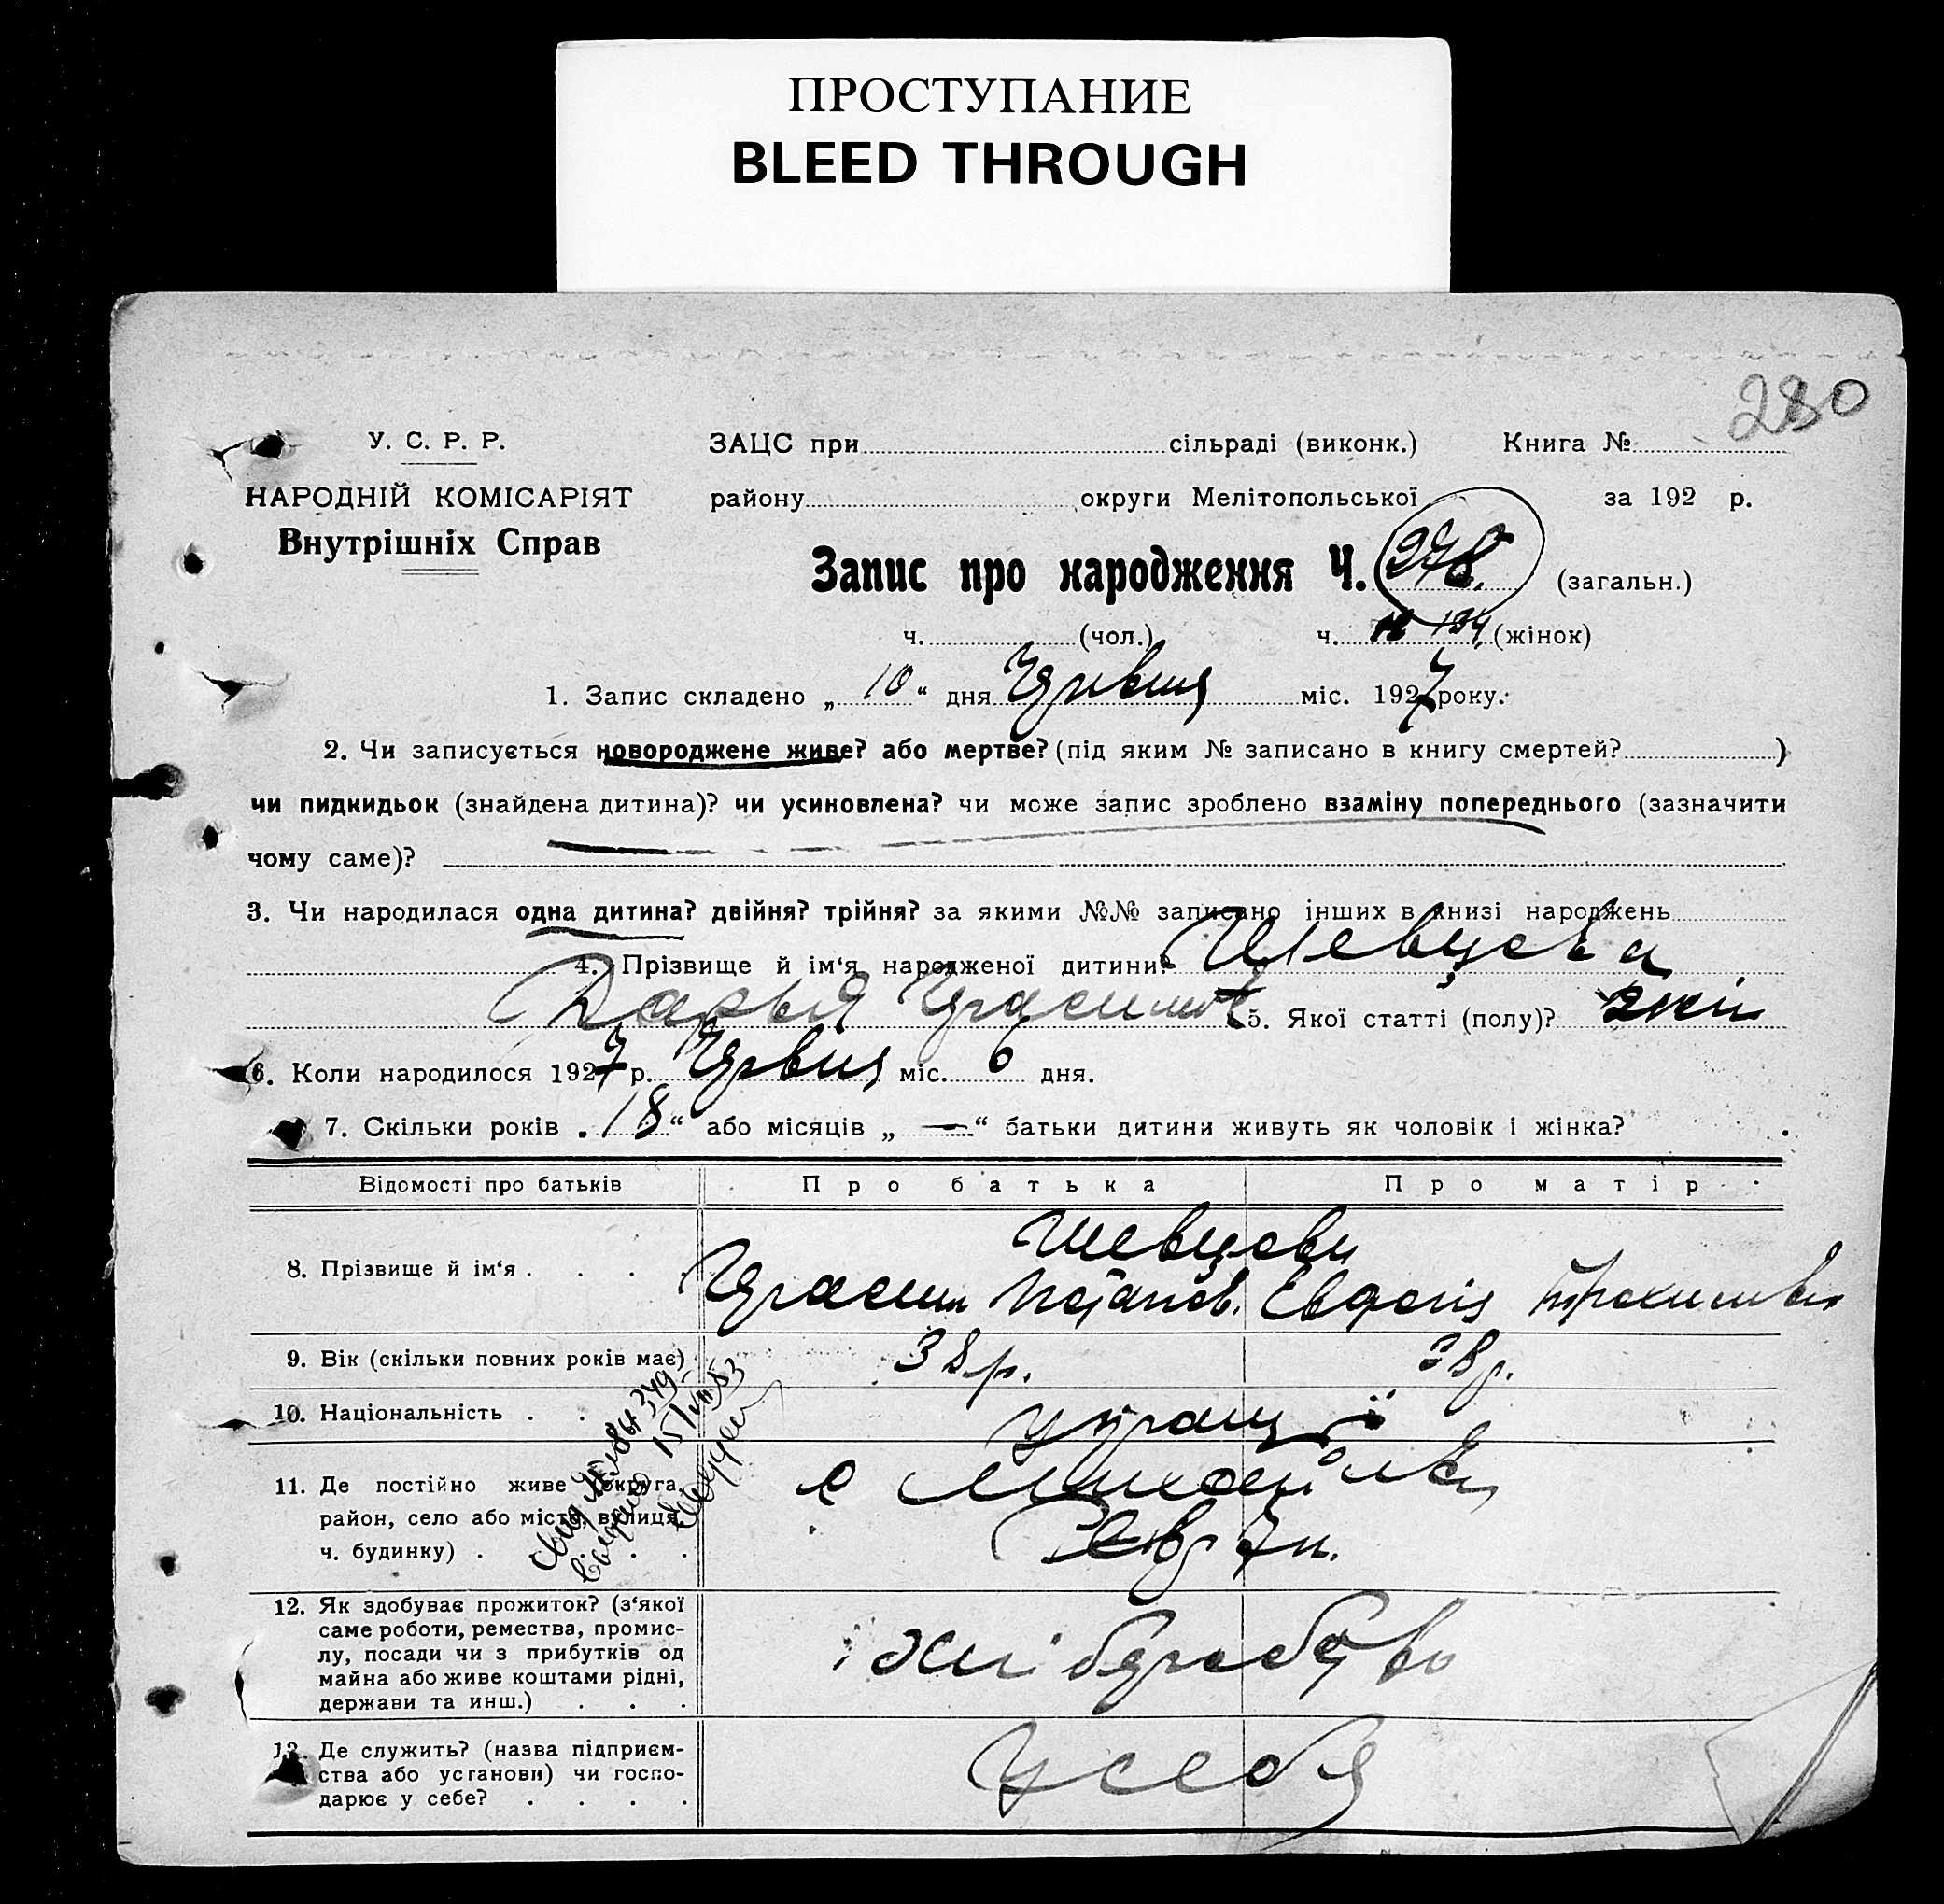 ПРОСТУПАНИЕ
BLEED THROUGH
280
У. С. Р. Р.
НАРОДНІЙ КОМІСАРІЯТ
Внутрішніх Справ
ЗАЦС при сільраді (виконк.) Книга №
району округи Мелітопольської за 192 р.
Запис про народження Ч. 278. (загальн.)
ч. (чол.) ч. 134 (жінок)
1. Запис складено „ 10 “ дня міс. 1927 року.
2. Чи записується новороджене живе? або мертве? (під яким № записано в книгу смертей? )
чи пидкидьок (знайдена дитина)? чи усиновлена? чи може запис зроблено взаміну попереднього (зазначити
чому саме)?
3. Чи народилася одна дитина? двійня? трійня? за якими №№ записано інших в книзі народжень
4. Прізвище й ім‘я народженої дитини? Шевцева
Дарья 5. Якої статті (полу)? жін
6. Коли народилося 1927 р. міс. 6 дня.
7. Скільки років „ 18 “ або місяців „ — “ батьки дитини живуть як чоловік і жінка?
Відомості про батьків Про батька Про матір
8. Прізвище й ім‘я . . . . Шевцови
Потапов.
9. Вік (скільки повних років має) 38 р. 38 р.
10. Національність . . . .
11. Де постійно живе округа,
район, село або місто, вулиця,
ч. будинку) . . . .
с Михайлів
12. Як здобуває прожиток? (з‘якої
саме роботи, ремества, промис-
лу, посади чи з прибутків од
майна або живе коштами рідні,
держави та инш.) . . .
13. Де служить? (назва підприєм-
ства або установи) чи госпо-
дарює у себе? . . . . .
У себя